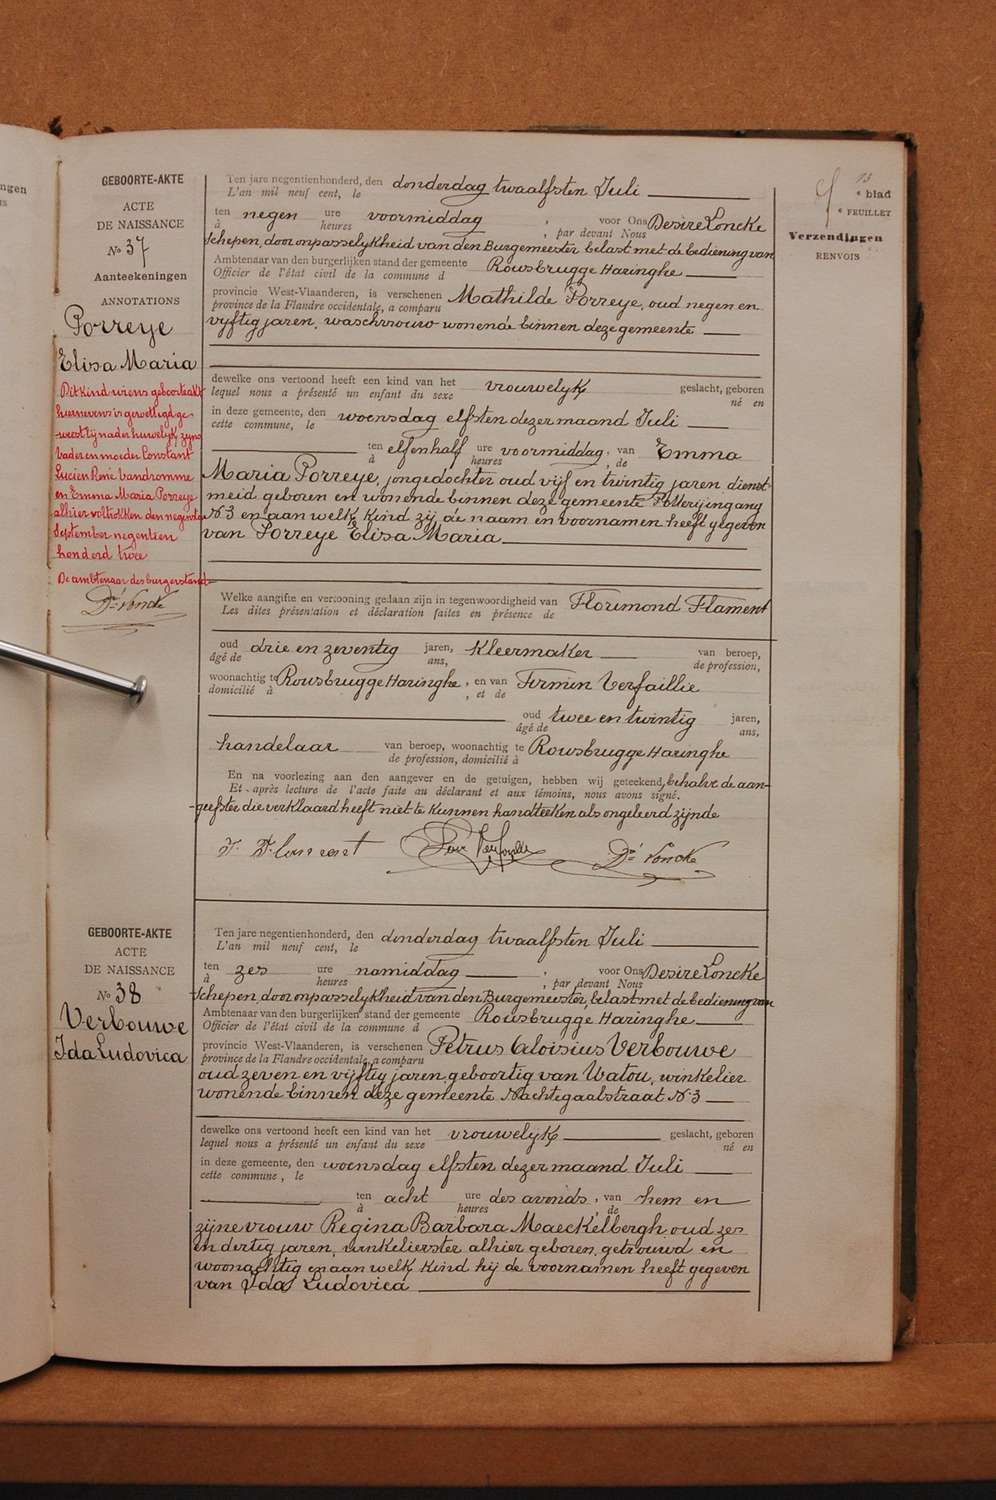 ngen
GEBOORTE-AKTE
ACTE
DE NAISSANCE
No 37
Aanteekeningen
ANNOTATIONS
Porreye
Elisa Maria
Dit kind wiens geboorteakt
hiernevens is gewettigd ge-
weest bij nader huwelijk zijns
Vader en moeder Constant
Lucien René Vandromme
en Emma Maria Porreye
alhier voltrokken den negenden
September negentien
honderd twee
De ambtenaar des burgerstand
Dré Loncke
Ten jare negentienhonderd, den donderdag twaalfsten Juli
L'an mil neuf cent, le
ten negen ure voormiddag ; voor Ons Desiré Loncke
à heures ; par devant Nous
Schepen, door onpasselijkheid van den Burgemeester belast met de bediening van
Ambtenaar van den burgerlijken stand der gemeente Rousbrugge Haringhe
Officier de l'état civil de la commune d
provincie West-Vlaanderen, is verschenen Mathilde Porreye, oud negen en
province de la Flandre occidentale, a comparu
vijftig jaren, waschvrouw wonende binnen deze gemeente
dewelke ons vertoond heeft een kind van het vrouwelijk geslacht, geboren
lequel nous a présenté un enfant du sexe né en
in deze gemeente, den woensdag elfsten dezer maand Juli
cette commune, le
ten elfenhalf ure voormiddag, van Emma
à heures , de
Maria Porreye, jongedochter oud vijf en twintig jaren dienst-
meid geboren en wonende binnen deze gemeente Potterijingang
No 3 en aan welk kind zij de naam en voornamen heeft gegeven
van Porreye Elisa Maria
Welke aangifte en vertooning gedaan zijn in tegenwoordigheid van Florimond Flament
Les dites présentation et déclaration faites en présence de
oud drie en zeventig jaren, Kleermaker van beroep,
âgé de ans, de profession,
woonachtig te Rousbrugge Haringhe, en van Firmin Verfaillie
domicilié à , et de
oud twee en twintig jaren,
âgé de ans,
handelaar van beroep, woonachtig te Rousbrugge Haringhe
de profession, domicilié à
En na voorlezing aan den aangever en de getuigen, hebben wij geteekend, behalve de aan-
Et après lecture de l'acte faite au déclarant et aux témoins, nous avons signé.
geefster die verklaard heeft niet te kunnen handteeken als ongeleerd zijnde
F. Flament Verfaillie Dré Loncke
GEBOORTE-AKTE
ACTE
DE NAISSANCE
No 38
Verbouwe
Ida Ludovica
Ten jare negentienhonderd, den donderdag twaalfsten Juli
L'an mil neuf cent, le
ten zes ure namiddag ; voor Ons Desiré Loncke
à heures ; par devant Nous
Schepen, door onpasselijkheid van den Burgemeester, belast met de bediening van
Ambtenaar van den burgerlijken stand der gemeente Rousbrugge Haringhe
Officier de l'état civil de la commune d
provincie West-Vlaanderen, is verschenen Petrus Aloisius Verbouwe
province de la Flandre occidentale, a comparu
oud zeven en vijftig jaren, geboortig van Watou, winkelier
wonende binnen deze gemeente Nachtegaalstraat No 3
dewelke ons vertoond heeft een kind van het vrouwelijk geslacht, geboren
lequel nous a présenté un enfant du sexe né en
in deze gemeente, den woensdag elfsten dezer maand Juli
cette commune, le
ten acht ure des avonds, van hem en
à heures , de
zijne vrouw Regina Barbara Maeckelbergh, oud zes
en dertig jaren, winkelierster alhier geboren, getrouwd en
woonachtig en aan welk kind hij de voornamen heeft gegeven
van Ida Ludovica
13
e blad
e FEUILLET
Verzendingen
RENVOIS